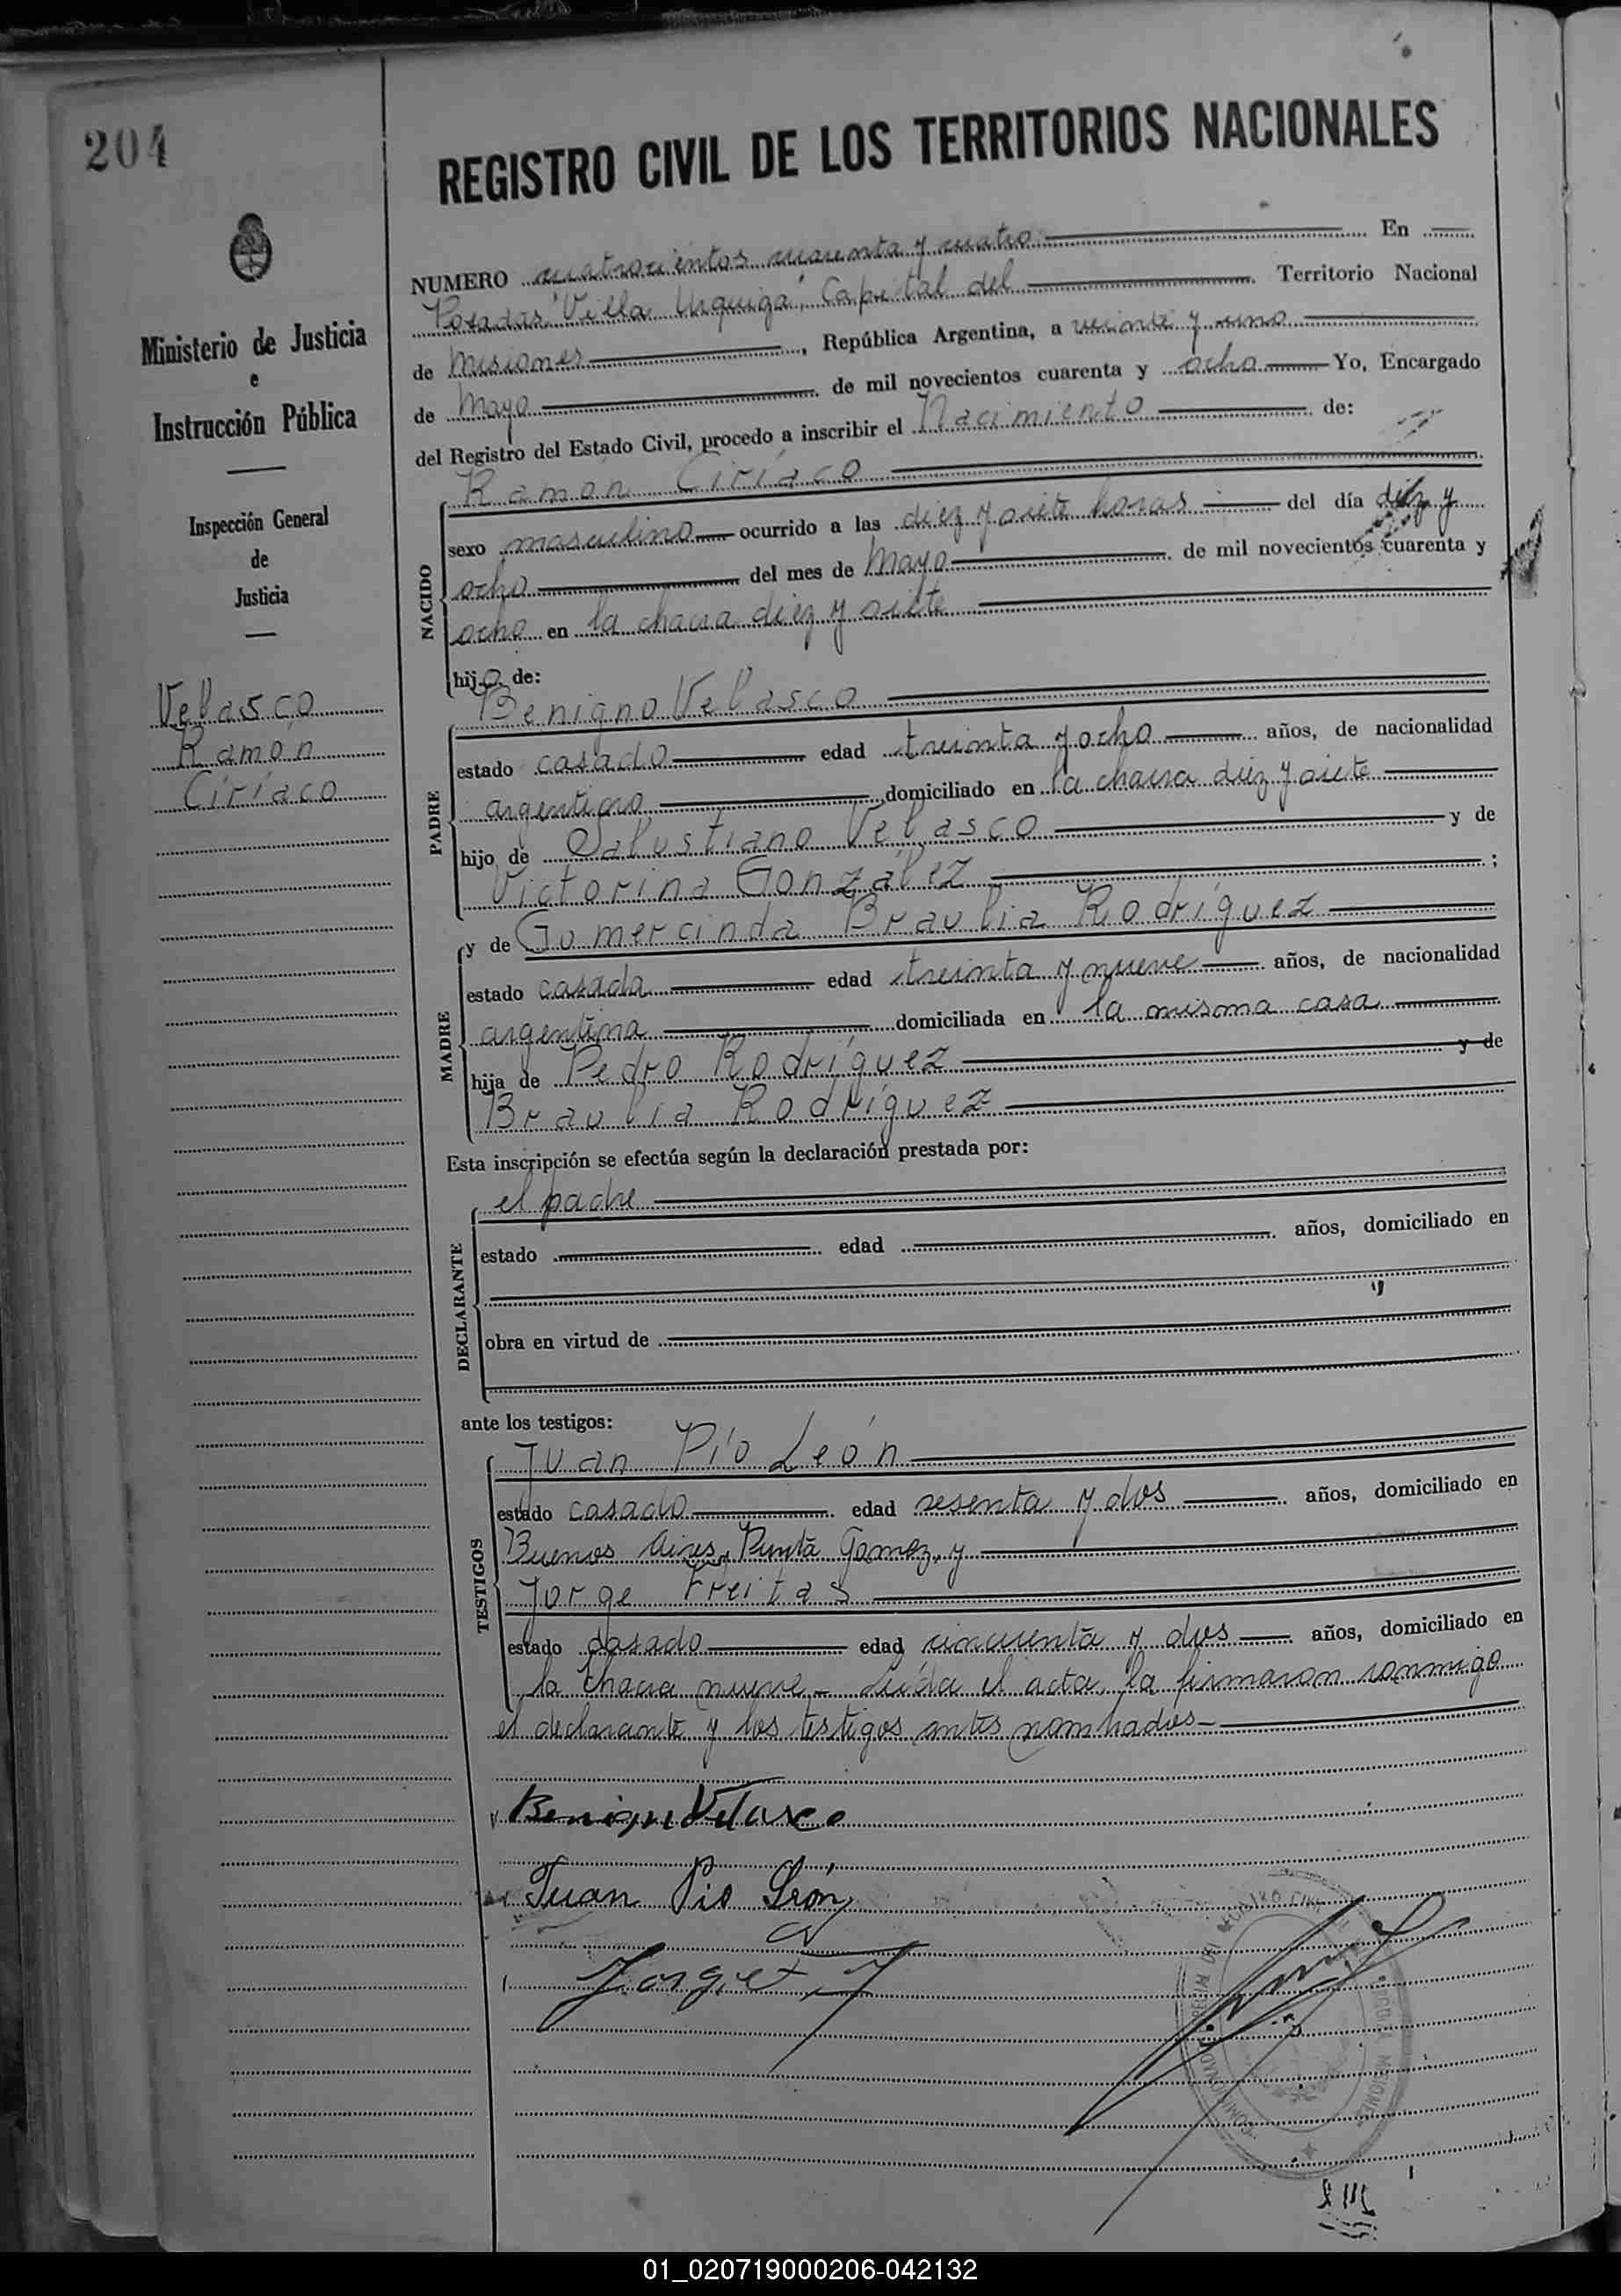 204
Ministerio de Justicia
e
Instrucción Pública
Inspección General
de
Justicia
Velasco
Ramón
Ciríaco
REGISTRO CIVIL DE LOS TERRITORIOS NACIONALES
NUMERO cuatrocientos cuarenta y cuatro En
Posadas "Villa Urquiza", Capital del Territorio Nacional
de Misiones, República Argentina, a veinte y uno
de Mayo de mil novecientos cuarenta y ocho Yo, Encargado
del Registro del Estado Civil, procedo a inscribir el Nacimiento de:
Ramón Ciríaco
NACIDO
sexo masculino ocurrido a las diez y siete horas del día diez y
ocho del mes de Mayo de mil novecientos cuarenta y
ocho en la chacra diez y siete
hijo de:
Benigno Velasco
PADRE
estado casado edad treinta y ocho años, de nacionalidad
argentino domiciliado en la chacra diez y siete
hijo de Salustiano Velasco y de
Victorina González ;
y de Gumercinda Braulia Rodríguez
MADRE
estado casada edad treinta y nueve años, de nacionalidad
argentina domiciliada en la misma casa
hija de Pedro Rodríguez y de
Braulia Rodríguez
Esta inscripción se efectúa según la declaración prestada por:
el padre
DECLARANTE
estado edad años, domiciliado en
obra en virtud de
ante los testigos:
Juan Pío León
TESTIGOS
estado casado edad sesenta y dos años, domiciliado en
Buenos Aires, Punta Gomez, y
Jorge Freitas
estado casado edad cincuenta y dos años, domiciliado en
la chacra nueve.- Leída el acta, la firmaron conmigo
el declarante y los testigos antes nombrados-
Benigno Velasco
Juan Pio León
Jorge F
01_020719000206-042132